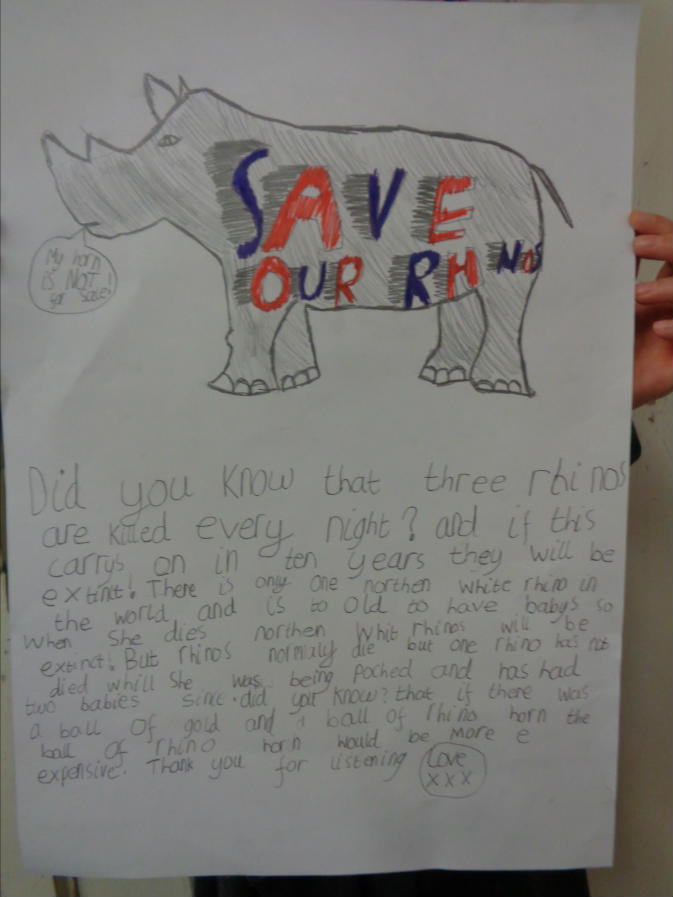 SAVE
OUR RHINOS
My horn
is NOT
for sale!
Did you know that three rhinos
are killed every night? and if this
carrys on in ten years they will be
extinct! There is only one northen white rhino in
the world and is to old to have babys so
when she dies northen whit rhinos will be
extinct! But rhinos normialy die but one rhino has not
died whill she was being poched and has had
two babies since. did you know? that if there was
a ball of gold and a ball of rhino horn the
ball of rhino horn would be more e
expensive. Thank you for listening
Love
xxx